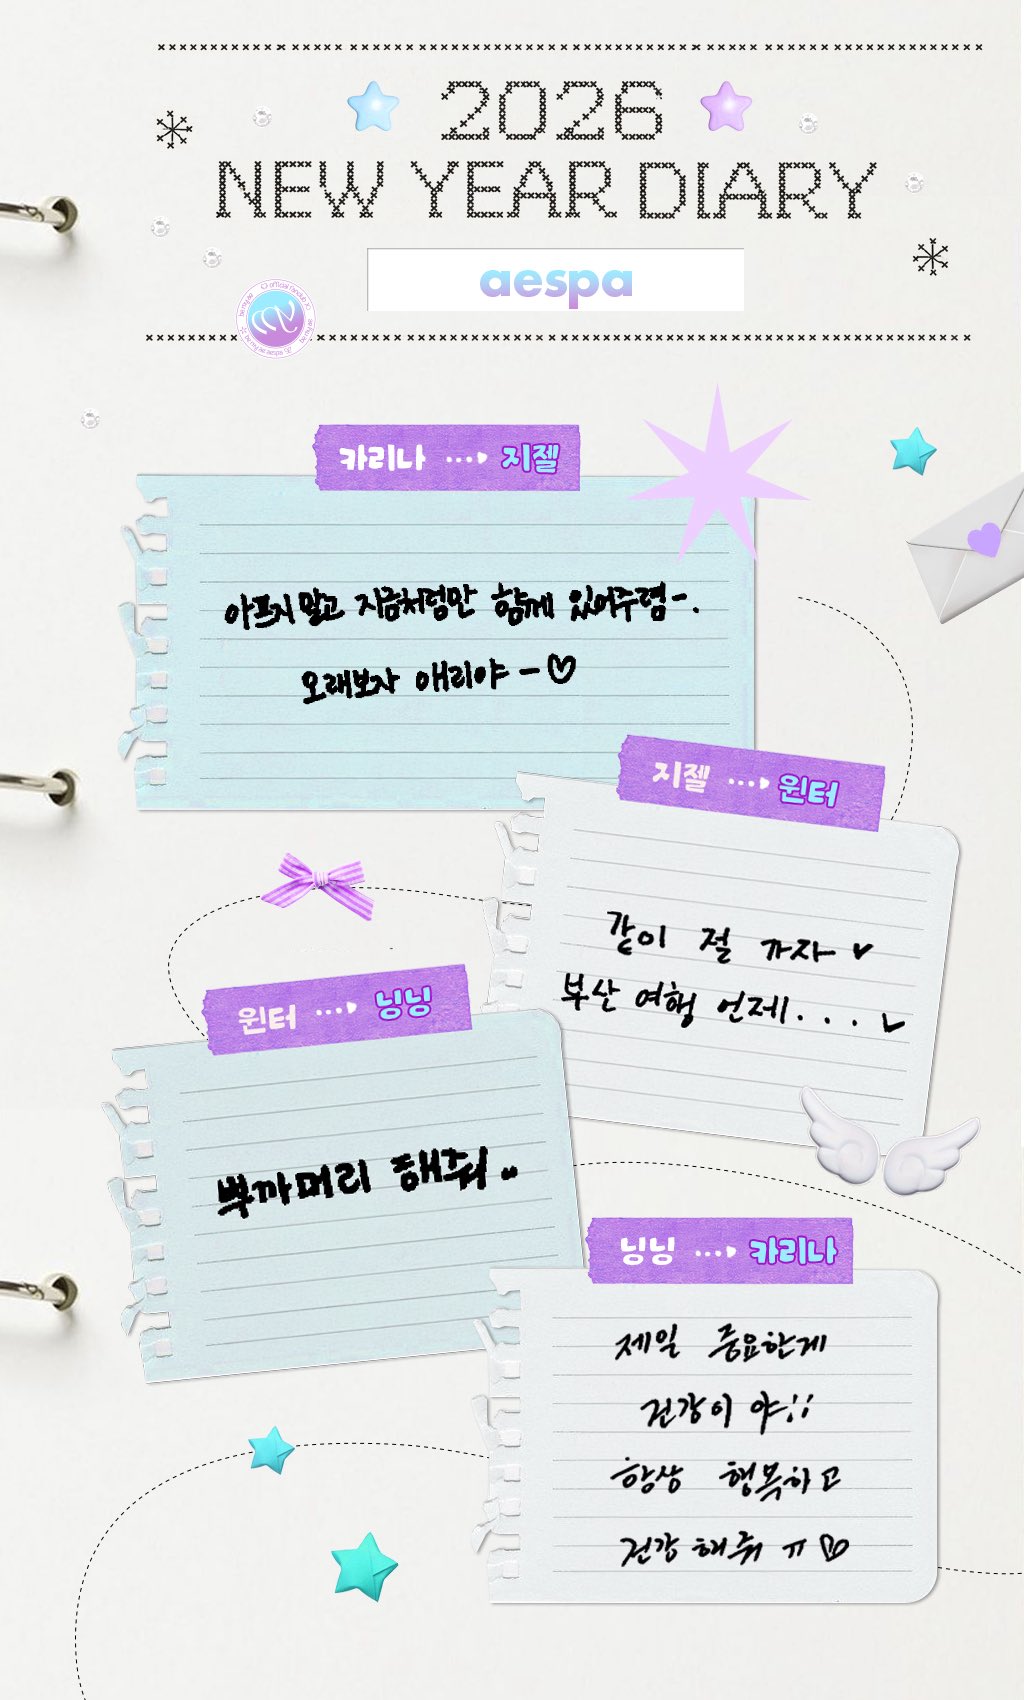 2026
NEW YEAR DIARY
aespa
카리나 ···▸ 지젤
아프지 말고 지금처럼만 함께 있어주렴-.
오래보자 애리야 - ♡
지젤 ···▸ 윈터
같이 절 가자 ♥
부산 여행 언제. . . .
윈터 ···▸ 닝닝
뿌까머리 해줘..
닝닝 ···▸ 카리나
제일 중요한게
건강이 야!!
항상 행복하고
건강 해줘 ㅠ ♡